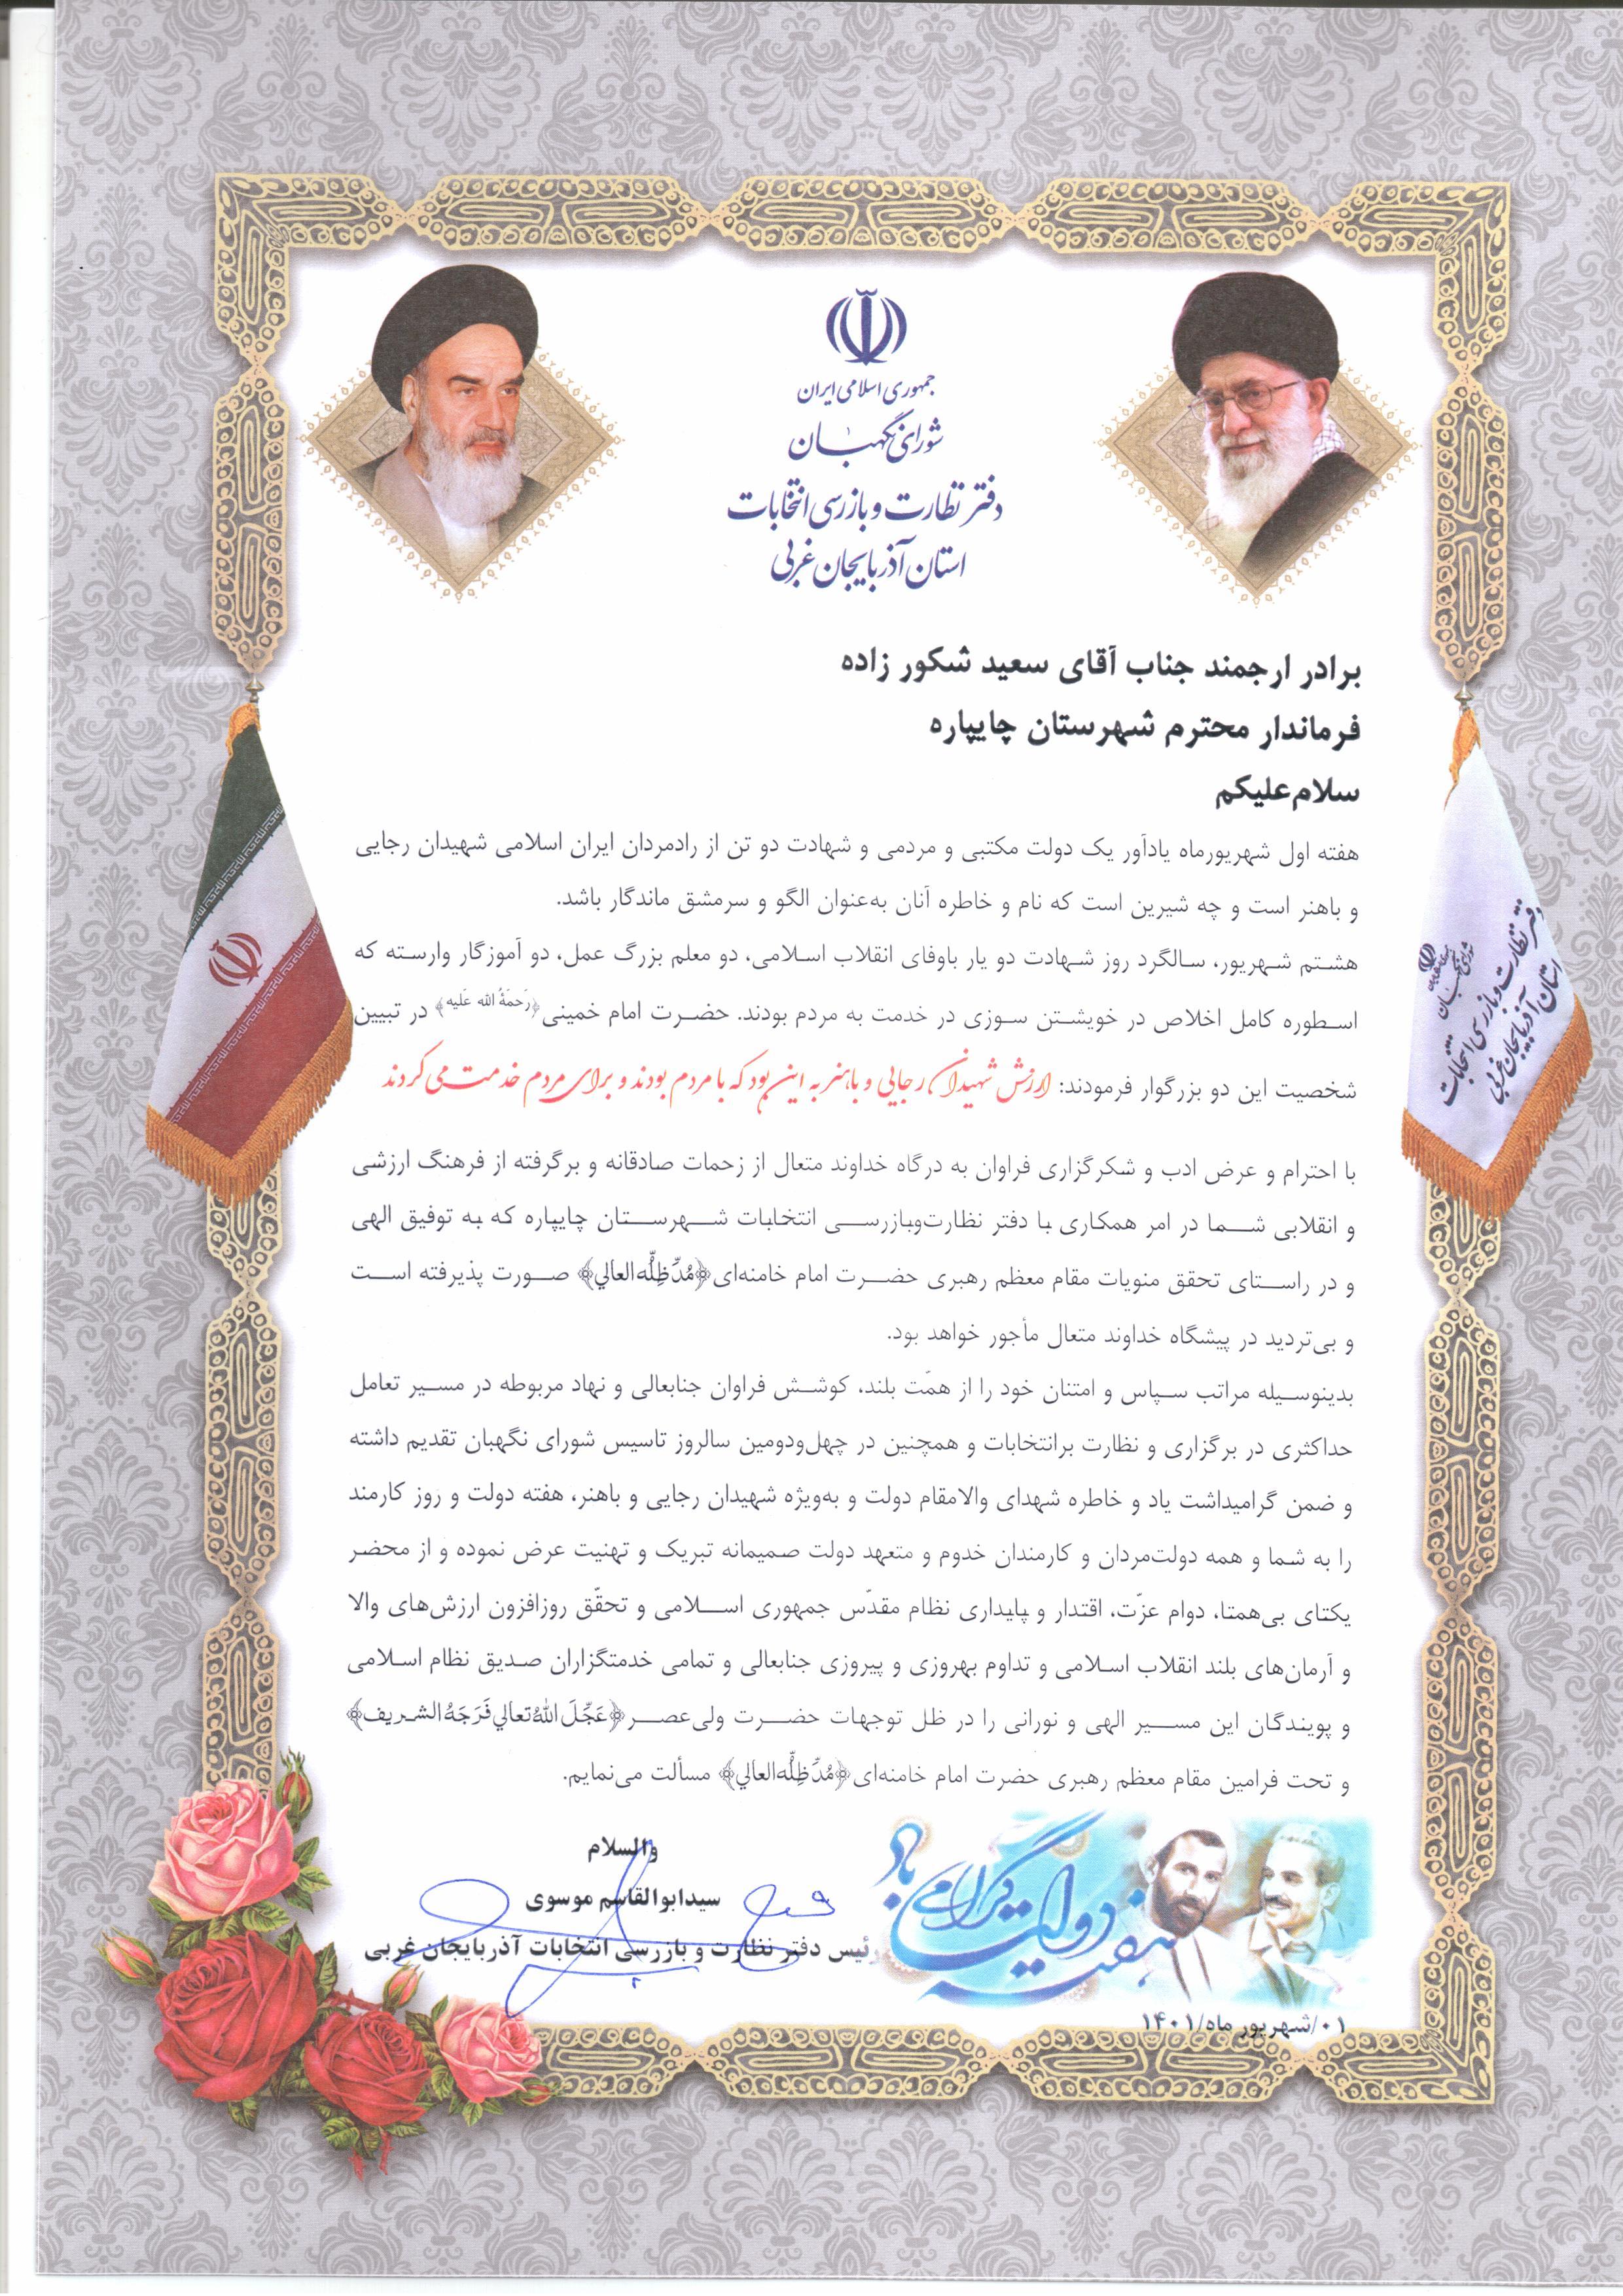 جمهوری اسلامی ایران
شورای نگهبان
دفتر نظارت و بازرسی انتخابات
استان آذربایجان غربی
برادر ارجمند جناب آقای سعید شکور زاده
فرماندار محترم شهرستان چایپاره
سلام‌علیکم
هفته اول شهریورماه یادآور یک دولت مکتبی و مردمی و شهادت دو تن از رادمردان ایران اسلامی شهیدان رجایی
و باهنر است و چه شیرین است که نام و خاطره آنان به‌عنوان الگو و سرمشق ماندگار باشد.
هشتم شهریور، سالگرد روز شهادت دو یار باوفای انقلاب اسلامی، دو معلم بزرگ عمل، دو آموزگار وارسته که
اسطوره کامل اخلاص در خویشتن سوزی در خدمت به مردم بودند. حضرت امام خمینی﴿رَحمَةُ الله عَلیه﴾ در تبیین
شخصیت این دو بزرگوار فرمودند: ارزش شهیدان رجایی و باهنر به این بود که با مردم بودند و برای مردم خدمت می کردند
با احترام و عرض ادب و شکرگزاری فراوان به درگاه خداوند متعال از زحمات صادقانه و برگرفته از فرهنگ ارزشی
و انقلابی شما در امر همکاری با دفتر نظارت‌وبازرسی انتخابات شهرستان چایپاره که به توفیق الهی
و در راستای تحقق منویات مقام معظم رهبری حضرت امام خامنه‌ای﴿مُدّ ظِلُّه العالي﴾ صورت پذیرفته است
و بی‌تردید در پیشگاه خداوند متعال مأجور خواهد بود.
بدینوسیله مراتب سپاس و امتنان خود را از همّت بلند، کوشش فراوان جنابعالی و نهاد مربوطه در مسیر تعامل
حداکثری در برگزاری و نظارت برانتخابات و همچنین در چهل‌ودومین سالروز تاسیس شورای نگهبان تقدیم داشته
و ضمن گرامیداشت یاد و خاطره شهدای والامقام دولت و به‌ویژه شهیدان رجایی و باهنر، هفته دولت و روز کارمند
را به شما و همه دولت‌مردان و کارمندان خدوم و متعهد دولت صمیمانه تبریک و تهنیت عرض نموده و از محضر
یکتای بی‌همتا، دوام عزّت، اقتدار و پایداری نظام مقدّس جمهوری اسلامی و تحقّق روزافزون ارزش‌های والا
و آرمان‌های بلند انقلاب اسلامی و تداوم بهروزی و پیروزی جنابعالی و تمامی خدمتگزاران صدیق نظام اسلامی
و پویندگان این مسیر الهی و نورانی را در ظل توجهات حضرت ولی‌عصر﴿عَجّلَ اللهُ تعالي فَرَجَهُ الشریف﴾
و تحت فرامین مقام معظم رهبری حضرت امام خامنه‌ای﴿مُدّ ظِلُّه العالي﴾ مسألت می‌نمایم.
والسلام
سیدابوالقاسم موسوی
رئیس دفتر نظارت و بازرسی انتخابات آذربایجان غربی
هفته دولت گرامی باد
۰۱/شهریور ماه/۱۴۰۱
شورای نگهبان
دفتر نظارت و بازرسی انتخابات
استان آذربایجان غربی